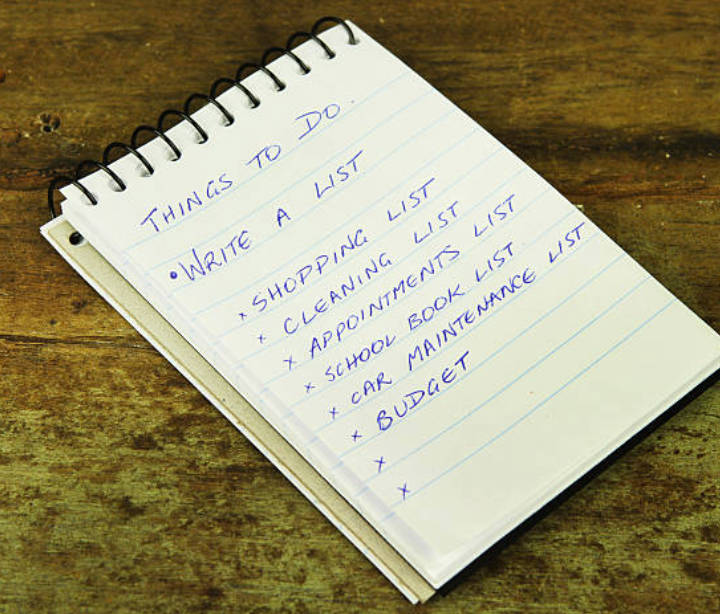 THINGS TO DO.
• WRITE A LIST
x SHOPPING LIST
x CLEANING LIST
x APPOINTMENTS LIST
x SCHOOL BOOK LIST.
x CAR MAINTENANCE LIST
x BUDGET
x
x